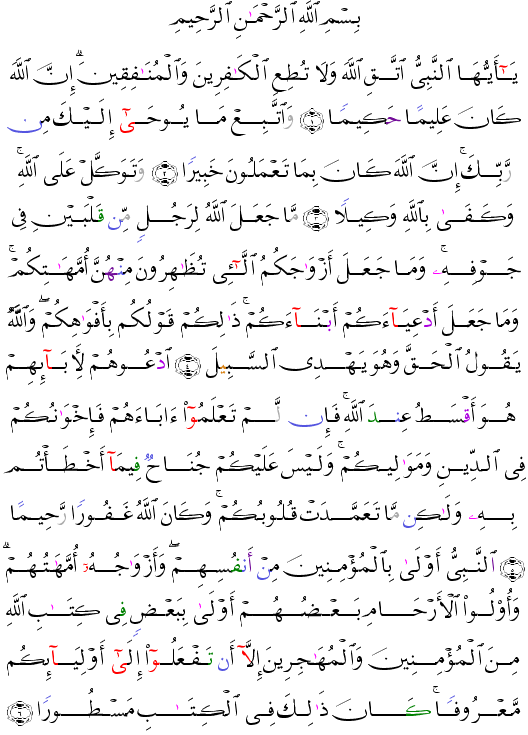 بِسْمِ ٱللَّهِ ٱلرَّحْمَٰنِ ٱلرَّحِيمِ
يَـٰٓأَيُّهَا ٱلنَّبِىُّ ٱتَّقِ ٱللَّهَ وَلَا تُطِعِ ٱلْكَـٰفِرِينَ وَٱلْمُنَـٰفِقِينَ ۗ إِنَّ ٱللَّهَ
كَانَ عَلِيمًا حَكِيمًا ١ وَٱتَّبِعْ مَا يُوحَىٰٓ إِلَيْكَ مِن
رَّبِّكَ ۚ إِنَّ ٱللَّهَ كَانَ بِمَا تَعْمَلُونَ خَبِيرًا ٢ وَتَوَكَّلْ عَلَى ٱللَّهِ ۚ
وَكَفَىٰ بِٱللَّهِ وَكِيلًا ٣ مَّا جَعَلَ ٱللَّهُ لِرَجُلٍ مِّن قَلْبَيْنِ فِى
جَوْفِهِۦ ۚ وَمَا جَعَلَ أَزْوَٰجَكُمُ ٱلَّـٰٓـِٔى تُظَـٰهِرُونَ مِنْهُنَّ أُمَّهَـٰتِكُمْ ۚ
وَمَا جَعَلَ أَدْعِيَآءَكُمْ أَبْنَآءَكُمْ ۚ ذَٰلِكُمْ قَوْلُكُم بِأَفْوَٰهِكُمْ ۖ وَٱللَّهُ
يَقُولُ ٱلْحَقَّ وَهُوَ يَهْدِى ٱلسَّبِيلَ ٤ ٱدْعُوهُمْ لِـَٔابَآئِهِمْ
هُوَ أَقْسَطُ عِندَ ٱللَّهِ ۚ فَإِن لَّمْ تَعْلَمُوٓا۟ ءَابَآءَهُمْ فَإِخْوَٰنُكُمْ
فِى ٱلدِّينِ وَمَوَٰلِيكُمْ ۚ وَلَيْسَ عَلَيْكُمْ جُنَاحٌ فِيمَآ أَخْطَأْتُم
بِهِۦ وَلَـٰكِن مَّا تَعَمَّدَتْ قُلُوبُكُمْ ۚ وَكَانَ ٱللَّهُ غَفُورًا رَّحِيمًا
٥ ٱلنَّبِىُّ أَوْلَىٰ بِٱلْمُؤْمِنِينَ مِنْ أَنفُسِهِمْ ۖ وَأَزْوَٰجُهُۥٓ أُمَّهَـٰتُهُمْ ۗ
وَأُو۟لُوا۟ ٱلْأَرْحَامِ بَعْضُهُمْ أَوْلَىٰ بِبَعْضٍ فِى كِتَـٰبِ ٱللَّهِ
مِنَ ٱلْمُؤْمِنِينَ وَٱلْمُهَـٰجِرِينَ إِلَّآ أَن تَفْعَلُوٓا۟ إِلَىٰٓ أَوْلِيَآئِكُم
مَّعْرُوفًا ۚ كَانَ ذَٰلِكَ فِى ٱلْكِتَـٰبِ مَسْطُورًا ٦